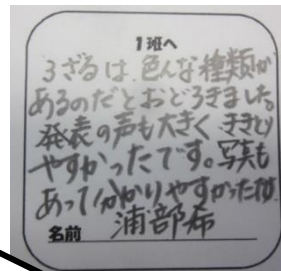 1班へ
3ざるは、色んな種類が
あるのだとおどろきました。
発表の声も大きく、ききとり
やすかったです。写真も
あって分かりやすかったです。
名前 浦部 希